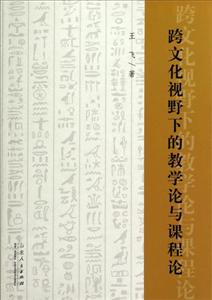 跨文化视野下的教学论与课程论
跨文化视野下的教学论与课程论
王 飞 / 著
山东人民出版社